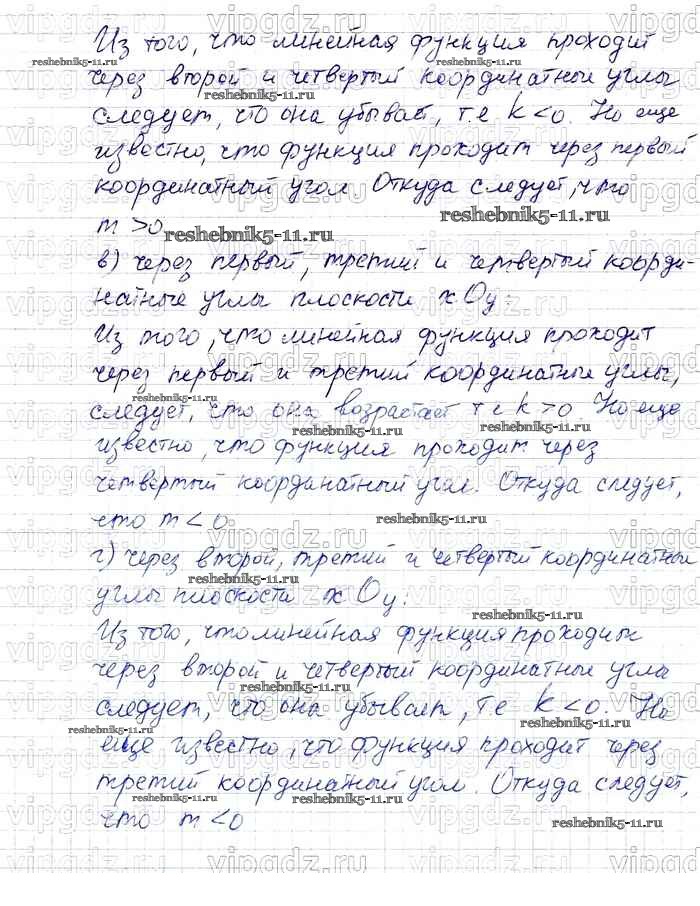 Из того, что линейная функция проходит
через второй и четвертый координатные углы
следует, что она убывает, т.е k<0. Но еще
известно, что функция проходит через первый
координатный угол. Откуда следует, что
m >0
в) через первый, третий и четвертый коорди-
натные углы плоскости xOy:
Из того, что линейная функция проходит
через первый и третий координатные углы,
следует, что она возрастает т е k >0. Но еще
известно, что функция проходит через
четвертый координатный угол. Откуда следует,
что m<0
г) через второй, третий и четвертый координатные
углы плоскости xOy:
Из того, что линейная функция проходит
через второй и четвертый координатные угла
следует, что она убывает, т е k<0. Но
еще известно, что функция проходит через
третий координатный угол. Откуда следует,
что m<0
reshebnik5-11.ru
vipgdz.ru